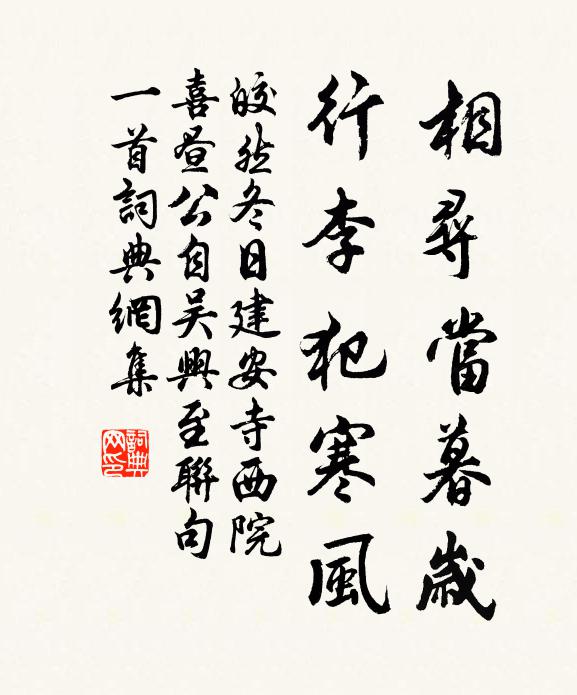 相尋當暮歲
行李犯寒風
皎然冬日建安寺西院
喜晝公自吴興至聯句
一首詞典網集
詞典
网印